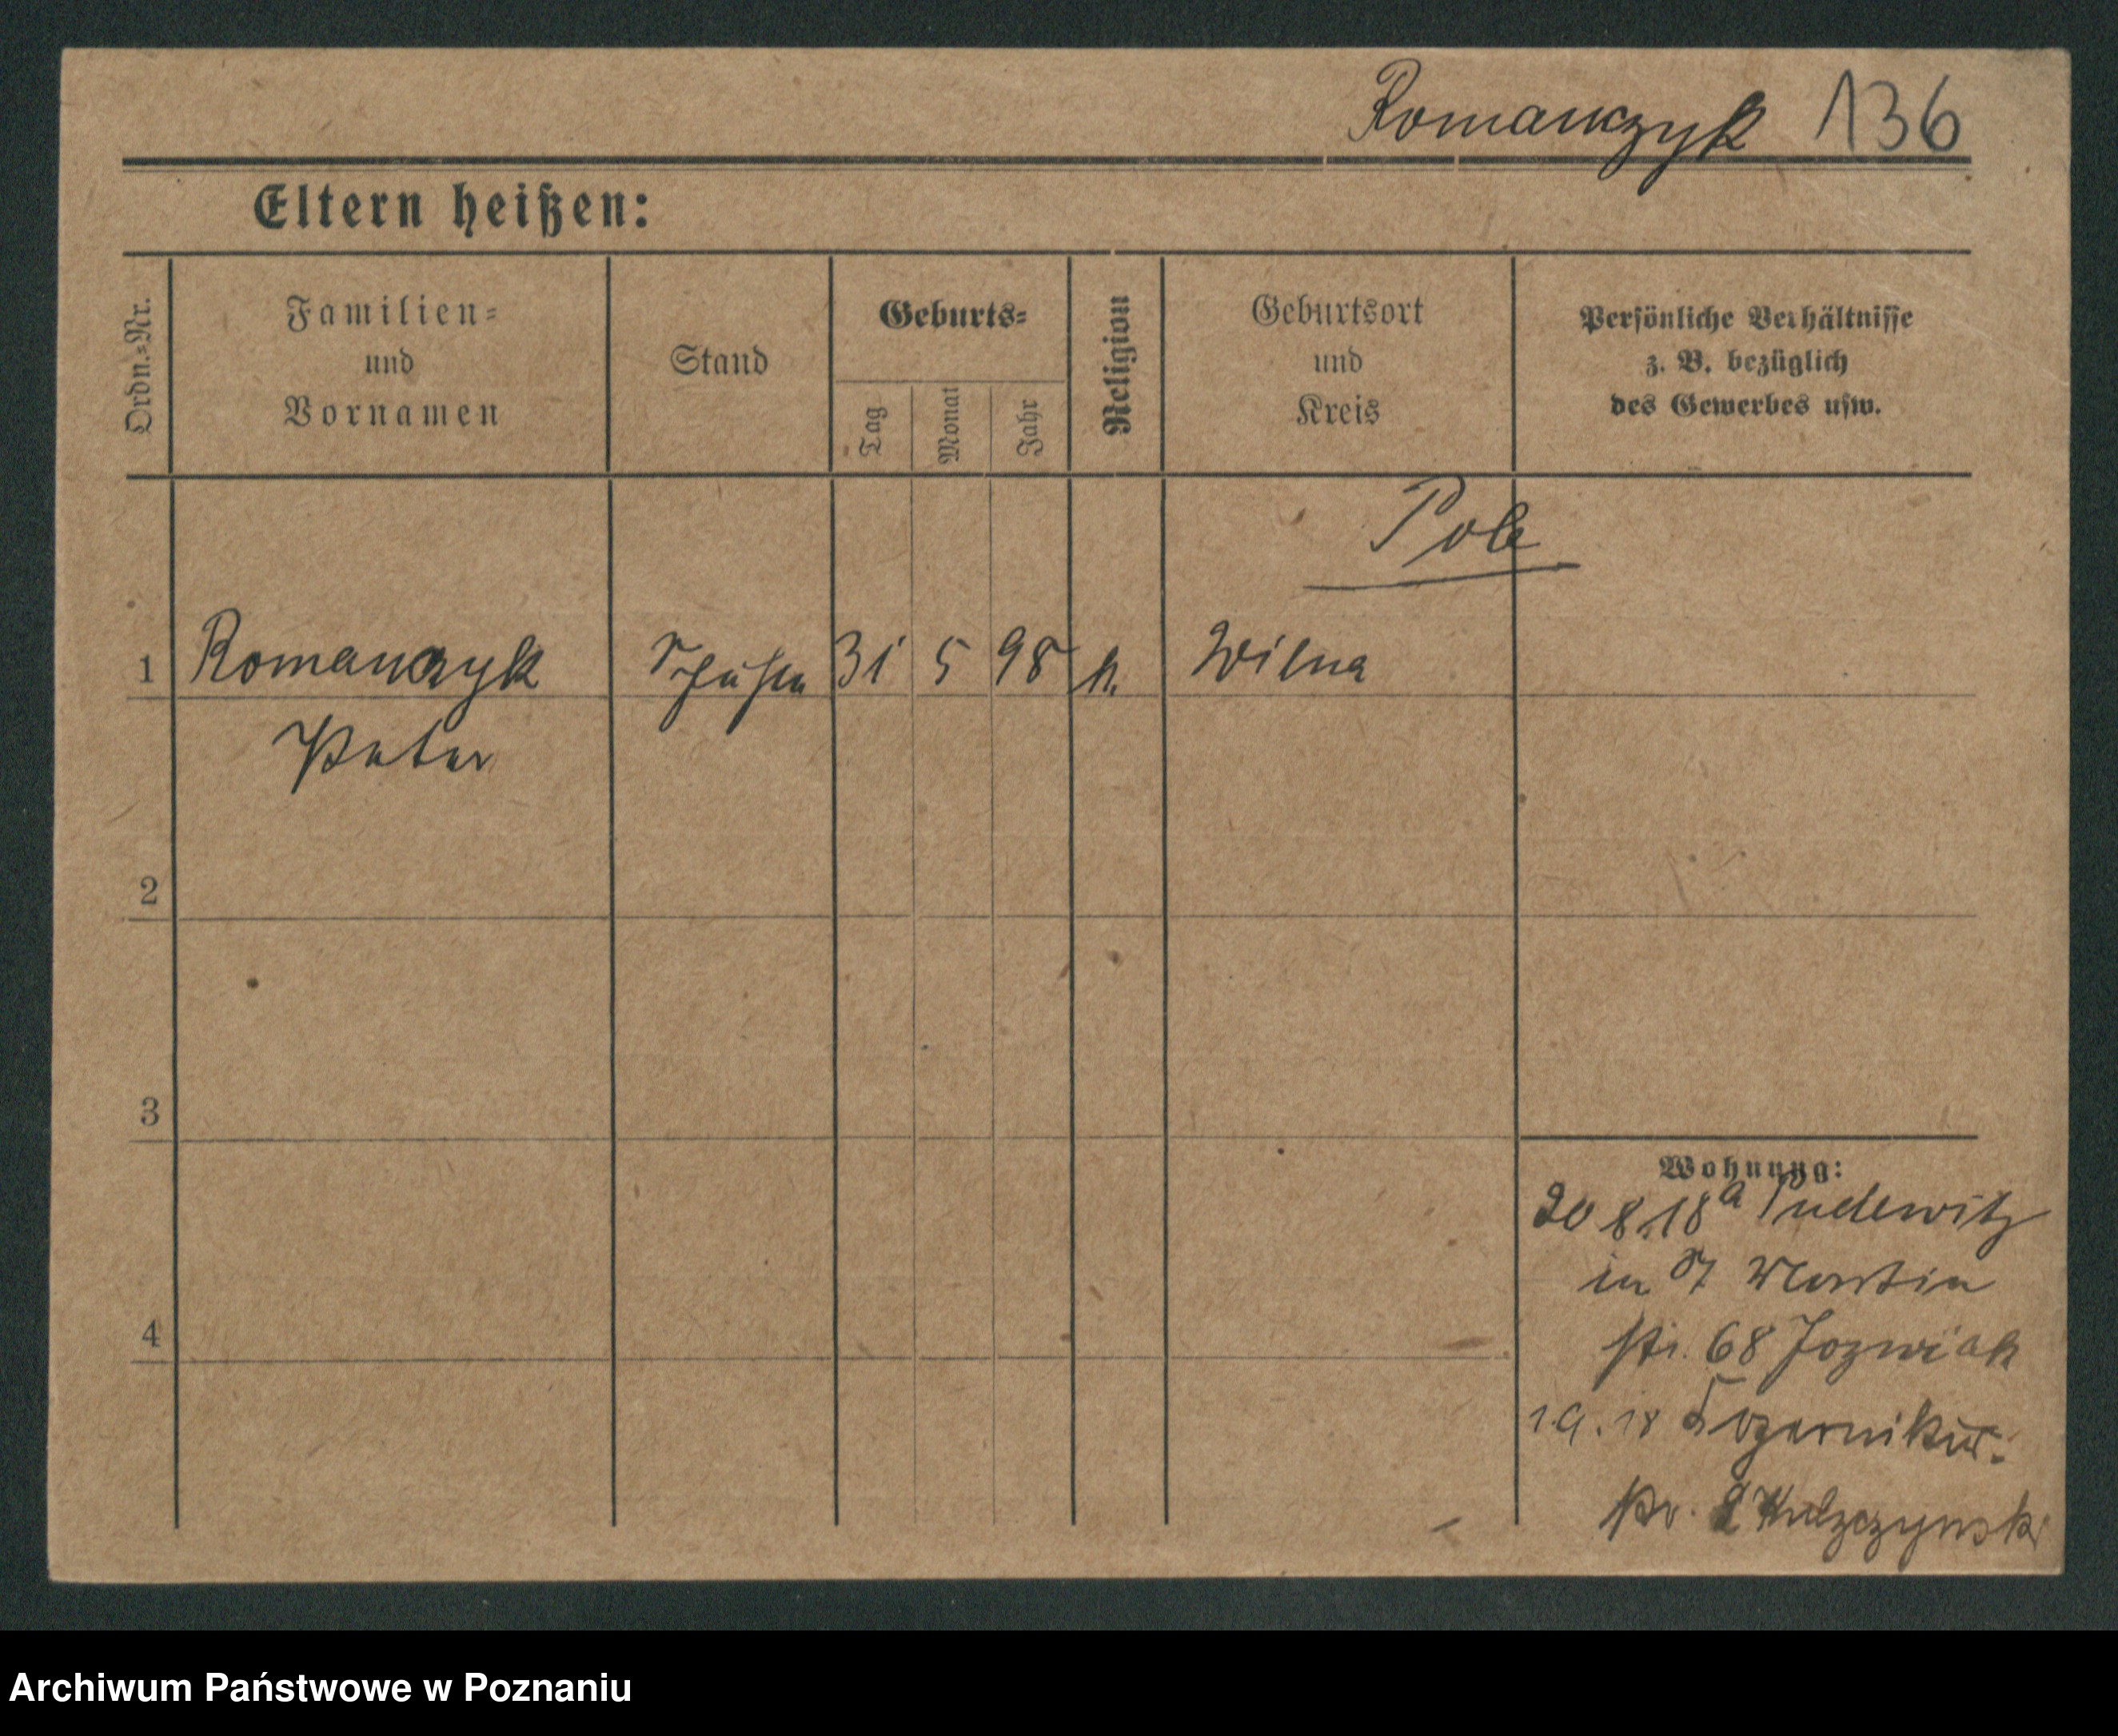 Romanczyk 136
Eltern heißen:
Ordn.=Nr.
Familien=
und
Vornamen
Stand
Geburts=
Tag
Monat
Jahr
Religion
Geburtsort
und
Kreis
Persönliche Verhältnisse
z. B. bezüglich
des Gewerbes usw.
Pole
1 Romanczyk 31 5 98 k. Wilna
Peter
2
3
4
Wohnung:
20 8.18 a Pudewitz
in St Martin
str. 68 Jozwiak
1.9.18
Archiwum Państwowe w Poznaniu